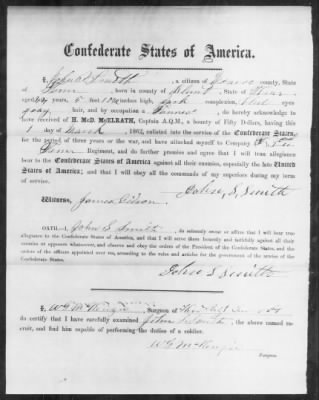 Confederate States of America.
I, John S. Smith, a citizen of county, State
of Tenn, born in county of, State of Tenn
aged years, 5 feet inches high, dark complexion, Blue eyes
gray hair, and by occupation a Farmer, do hereby acknowledge to
have received of H. McD. McELRATH, Captain A.Q.M., a bounty of Fifty Dollars, having this
1 day of March, 1862, enlisted into the service of the Confederate States,
for the period of three years or the war, and have attached myself to Company
Tenn Regiment, and do further promise and agree that I will true allegiance
bear to the Confederate States of America against all their enemies, especially the late United
States of America; and that I will obey all the commands of my superiors during my term
of service.
John, S, Smith
Witness, James Gibson.
OATH.—I, John S. Smith, do solemnly swear or affirm that I will bear true
allegiance to the Confederate States of America, and that I will serve them honestly and faithfully against all their
enemies or oppressors whatsoever, and observe and obey the orders of the President of the Confederate States, and the
orders of the officers appointed over me, according to the rules and articles for the government of the armies of the
Confederate States.
John S Smith
I, W G McKenzie, Surgeon of
do certify that I have carefully examined John S Smith, the above named re-
cruit, and find him capable of performing the duties of a soldier.
W G McKenzie
Surgeon.